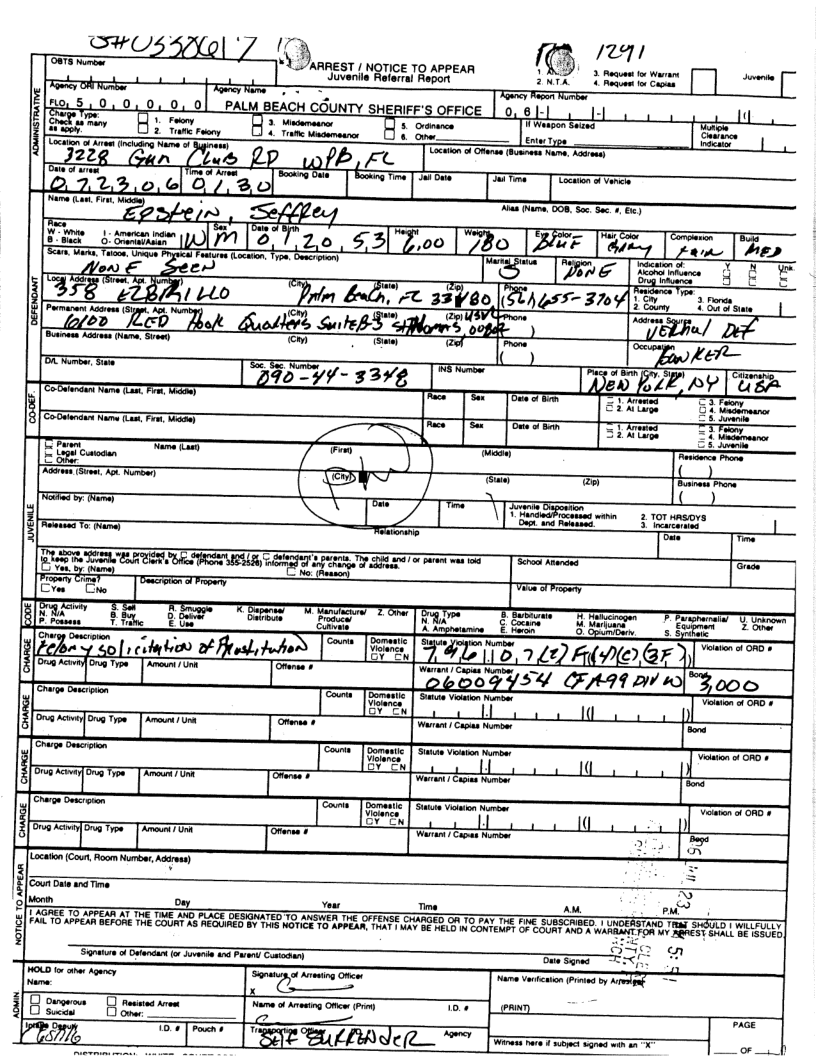 SH0338617
1291
OBTS Number
ARREST / NOTICE TO APPEAR
Juvenile Referral Report
2. N.T.A.
3. Request for Warrant
4. Request for Capias
Juvenile
ADMINISTRATIVE
Agency ORI Number
Agency Name
Agency Report Number
FLO, 5 0 0 0 0 0
PALM BEACH COUNTY SHERIFF'S OFFICE
0 6 - -
Charge Type:
Check as many as apply.
1. Felony
2. Traffic Felony
3. Misdemeanor
4. Traffic Misdemeanor
5. Ordinance
6. Other
If Weapon Seized
Enter Type
Multiple Clearance Indicator
Location of Arrest (Including Name of Business)
3228 Gun Club RD WPB, FL
Location of Offense (Business Name, Address)
Date of arrest 072306
Time of Arrest 0130
Booking Date
Booking Time
Jail Date
Jail Time
Location of Vehicle
DEFENDANT
Name (Last, First, Middle)
Epstein, Jeffrey
Alias (Name, DOB, Soc. Sec. #, Etc.)
Race
W - White I - American Indian
B - Black O - Oriental/Asian
W
Sex M
Date of Birth 012053
Height 6.00
Weight 180
Eye Color BLUE
Hair Color GRAY
Complexion FAIR
Build MED
Scars, Marks, Tatoos, Unique Physical Features (Location, Type, Description)
NONE SEEN
Marital Status S
Religion NONE
Indication of: Y N Unk.
Alcohol Influence
Drug Influence
Local Address (Street, Apt. Number) (City) (State) (Zip) Phone
358 EZBRILLO Palm Beach, FL 33480 (561) 655-3704
Residence Type:
1. City
2. County
3. Florida
4. Out of State
Permanent Address (Street, Apt. Number) (City) (State) (Zip) Phone
6100 RED Hook Quarters Suite B-3 St Thomas, 00802 USVI
Address Source
VERbal DEF
Business Address (Name, Street) (City) (State) (Zip) Phone
Occupation
BANKER
D/L Number, State
Soc. Sec. Number
090-44-3348
INS Number
Place of Birth (City, State)
NEW YORK, NY
Citizenship
USA
CO-DEF.
Co-Defendant Name (Last, First, Middle)
Race Sex Date of Birth
1. Arrested
2. At Large
3. Felony
4. Misdemeanor
5. Juvenile
Co-Defendant Name (Last, First, Middle)
Race Sex Date of Birth
1. Arrested
2. At Large
3. Felony
4. Misdemeanor
5. Juvenile
JUVENILE
Parent
Legal Custodian
Other:
Name (Last) (First) (Middle)
Residence Phone
( )
Address (Street, Apt. Number) (City) (State) (Zip)
Business Phone
( )
Notified by: (Name)
Date
Time
Juvenile Disposition
1. Handled/Processed within Dept. and Released.
2. TOT HRS/DYS
3. Incarcerated
Released To: (Name)
Relationship
Date
Time
The above address was provided by defendant and / or defendant's parents. The child and / or parent was told
to keep the Juvenile Court Clerk's Office (Phone 355-2526) informed of any change of address.
Yes, by: (Name)
No: (Reason)
School Attended
Grade
Property Crime?
Yes No
Description of Property
Value of Property
CODE
Drug Activity
N. N/A
P. Possess
S. Sell
B. Buy
T. Traffic
R. Smuggle
D. Deliver
E. Use
K. Dispense/ Distribute
M. Manufacture/ Produce/ Cultivate
Z. Other
Drug Type
N. N/A
A. Amphetamine
B. Barbiturate
C. Cocaine
E. Heroin
H. Hallucinogen
M. Marijuana
O. Opium/Deriv.
P. Paraphernalia/ Equipment
S. Synthetic
U. Unknown
Z. Other
CHARGE
Charge Description
Felony solicitation of Prostitution
Counts
Domestic Violence
Y N
Statute Violation Number
796.07(2)F(4)(C)(3F)
Violation of ORD #
Drug Activity Drug Type Amount / Unit Offense #
Warrant / Capias Number
06009454 CFA99 DIV W
Bond
3,000
CHARGE
Charge Description
Counts
Domestic Violence
Y N
Statute Violation Number
Violation of ORD #
Drug Activity Drug Type Amount / Unit Offense #
Warrant / Capias Number
Bond
CHARGE
Charge Description
Counts
Domestic Violence
Y N
Statute Violation Number
Violation of ORD #
Drug Activity Drug Type Amount / Unit Offense #
Warrant / Capias Number
Bond
CHARGE
Charge Description
Counts
Domestic Violence
Y N
Statute Violation Number
Violation of ORD #
Drug Activity Drug Type Amount / Unit Offense #
Warrant / Capias Number
Bond
NOTICE TO APPEAR
Location (Court, Room Number, Address)
Court Date and Time
Month Day Year Time A.M. P.M.
I AGREE TO APPEAR AT THE TIME AND PLACE DESIGNATED TO ANSWER THE OFFENSE CHARGED OR TO PAY THE FINE SUBSCRIBED. I UNDERSTAND THAT SHOULD I WILLFULLY
FAIL TO APPEAR BEFORE THE COURT AS REQUIRED BY THIS NOTICE TO APPEAR, THAT I MAY BE HELD IN CONTEMPT OF COURT AND A WARRANT FOR MY ARREST SHALL BE ISSUED.
Signature of Defendant (or Juvenile and Parent/ Custodian)
Date Signed
ADMIN
HOLD for other Agency
Name:
Signature of Arresting Officer
X
Name Verification (Printed by Arrestee)
Dangerous
Suicidal
Resisted Arrest
Other:
Name of Arresting Officer (Print)
I.D. #
(PRINT)
Intake Deputy
I.D. #
Pouch #
Transporting Officer
SELF SURRENDER
Agency
Witness here if subject signed with an "X"
PAGE
OF